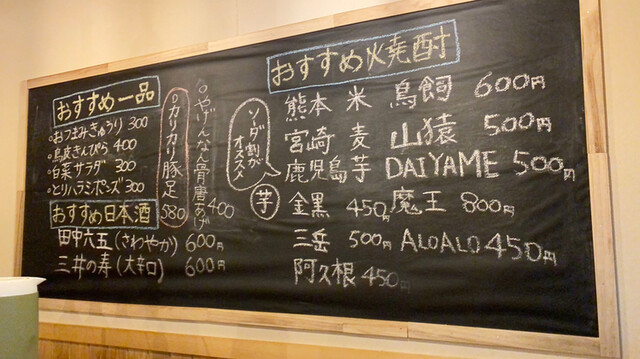 おすすめ一品
○おつまみきゅうり 300
○鳥皮きんぴら 400
○白菜サラダ 300
○とりハラミポンズ 300
○カリカリ豚足 580
○やげんなん骨唐あげ 400
おすすめ日本酒
田中六五(さわやか) 600円
三井の寿(大辛口) 600円
おすすめ焼酎
ソーダ割がオススメ
熊本 米 鳥飼 600円
宮崎 麦 山猿 500円
鹿児島 芋 DAIYAME 500円
芋
金黒 450円 魔王 800円
三岳 500円 ALOALO 450円
阿久根 450円